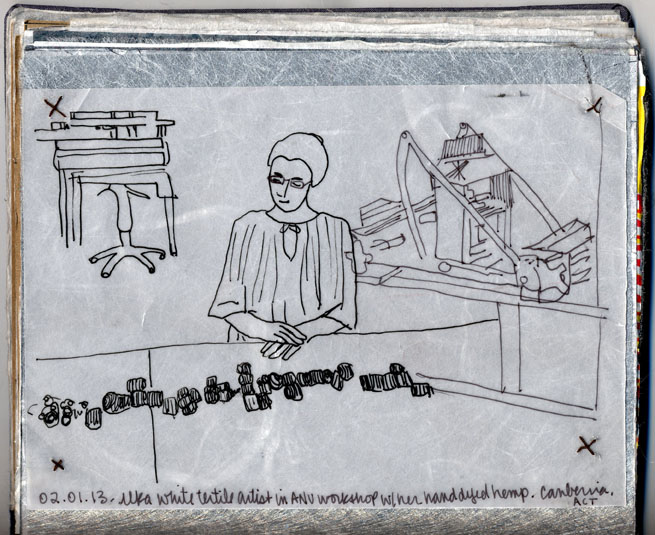 02.01.13. ilka white textile artist in ANU workshop w/ her hand dyed hemp. Canberra.
ACT